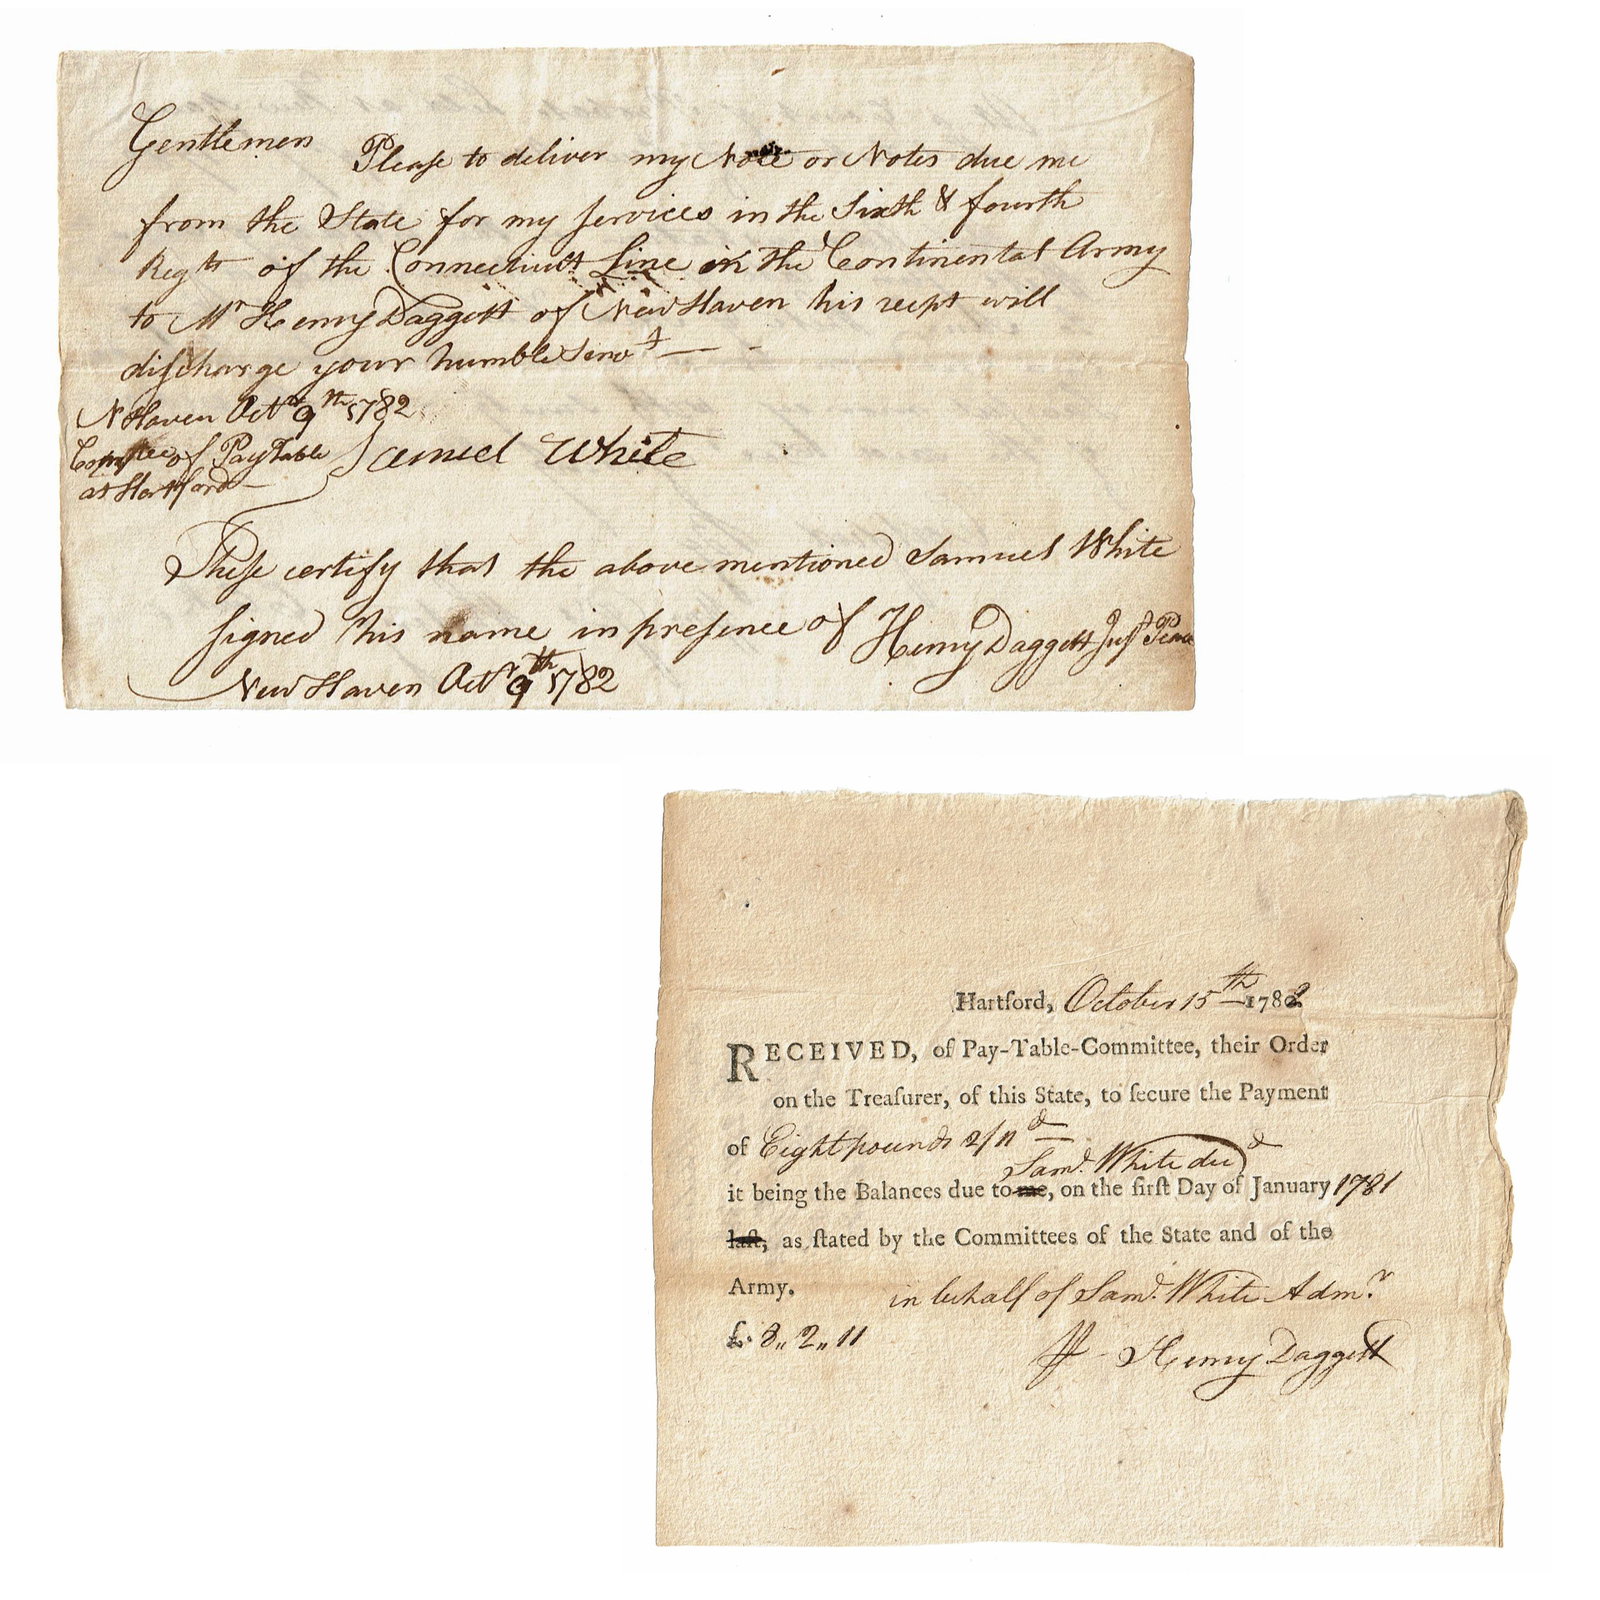 Gentlemen Please to deliver my Note or Notes due me
from the State for my services in the Sixth & fourth
Regth of the Connecticutt Line in the Continental Army
to Mr Henry Daggett of New Haven his recpt will
discharge your humble Servt
N Haven Octr 9th 1782
Comtee of Pay Table
at Hartford
Samuel White
These certify that the above mentioned Samuel White
signed his name in presence of Henry Daggett Just Peace
New Haven Octr 9th 1782
Hartford, October 15th 1782
RECEIVED, of Pay-Table-Committee, their Order
on the Treaſurer, of this State, to ſecure the Payment
of Eight pounds 2/11d
Saml. White decd
it being the Balances due to me, on the firſt Day of January 1781
laſt, as ſtated by the Committees of the State and of the
Army.
in behalf of Saml. White Admr.
£. 8,, 2,, 11
Henry Daggett